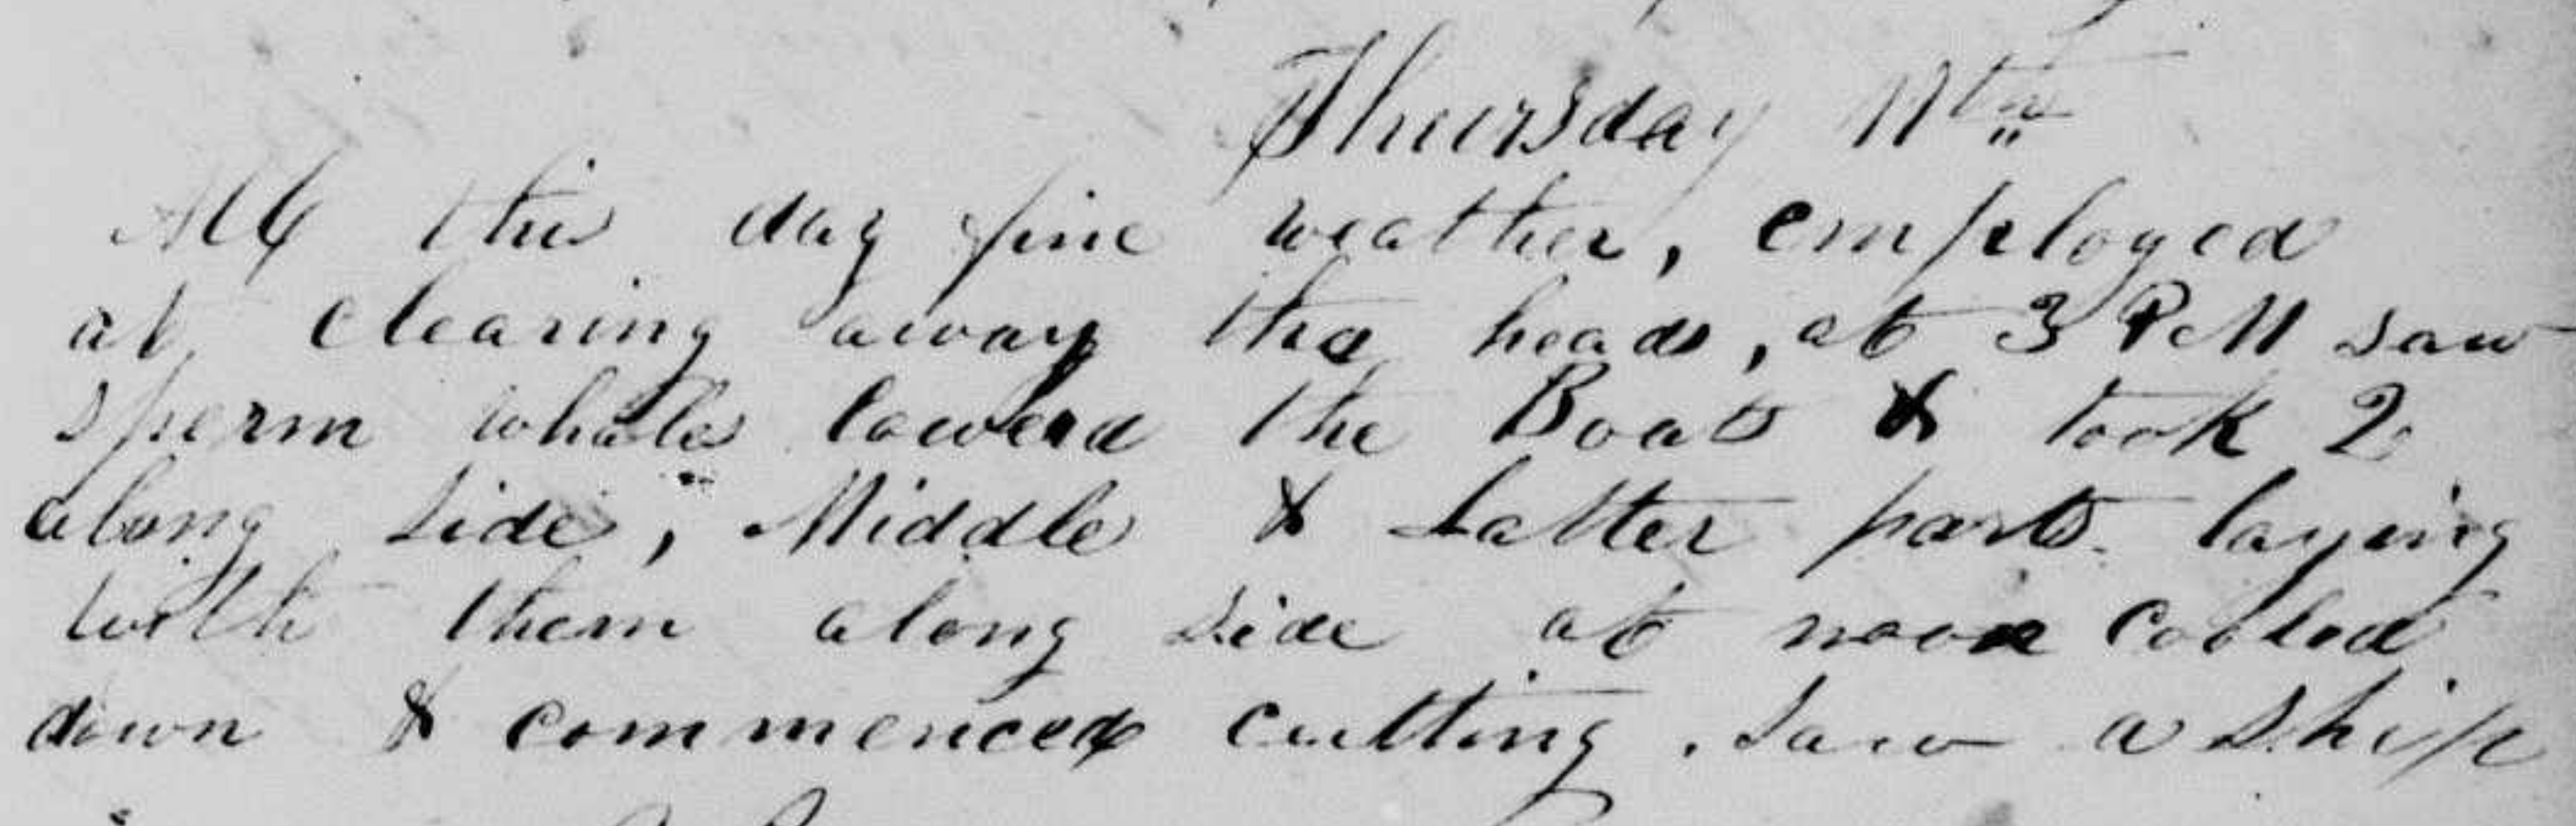 Thursday 11th
All this day fine weather, employed
at clearing away the heads, at 3 P M saw
sperm whales lowerd the Boats & took 2
along side, Middle & Latter parts laying
with them along side at noon cooled
down & commenced cutting. Saw a ship